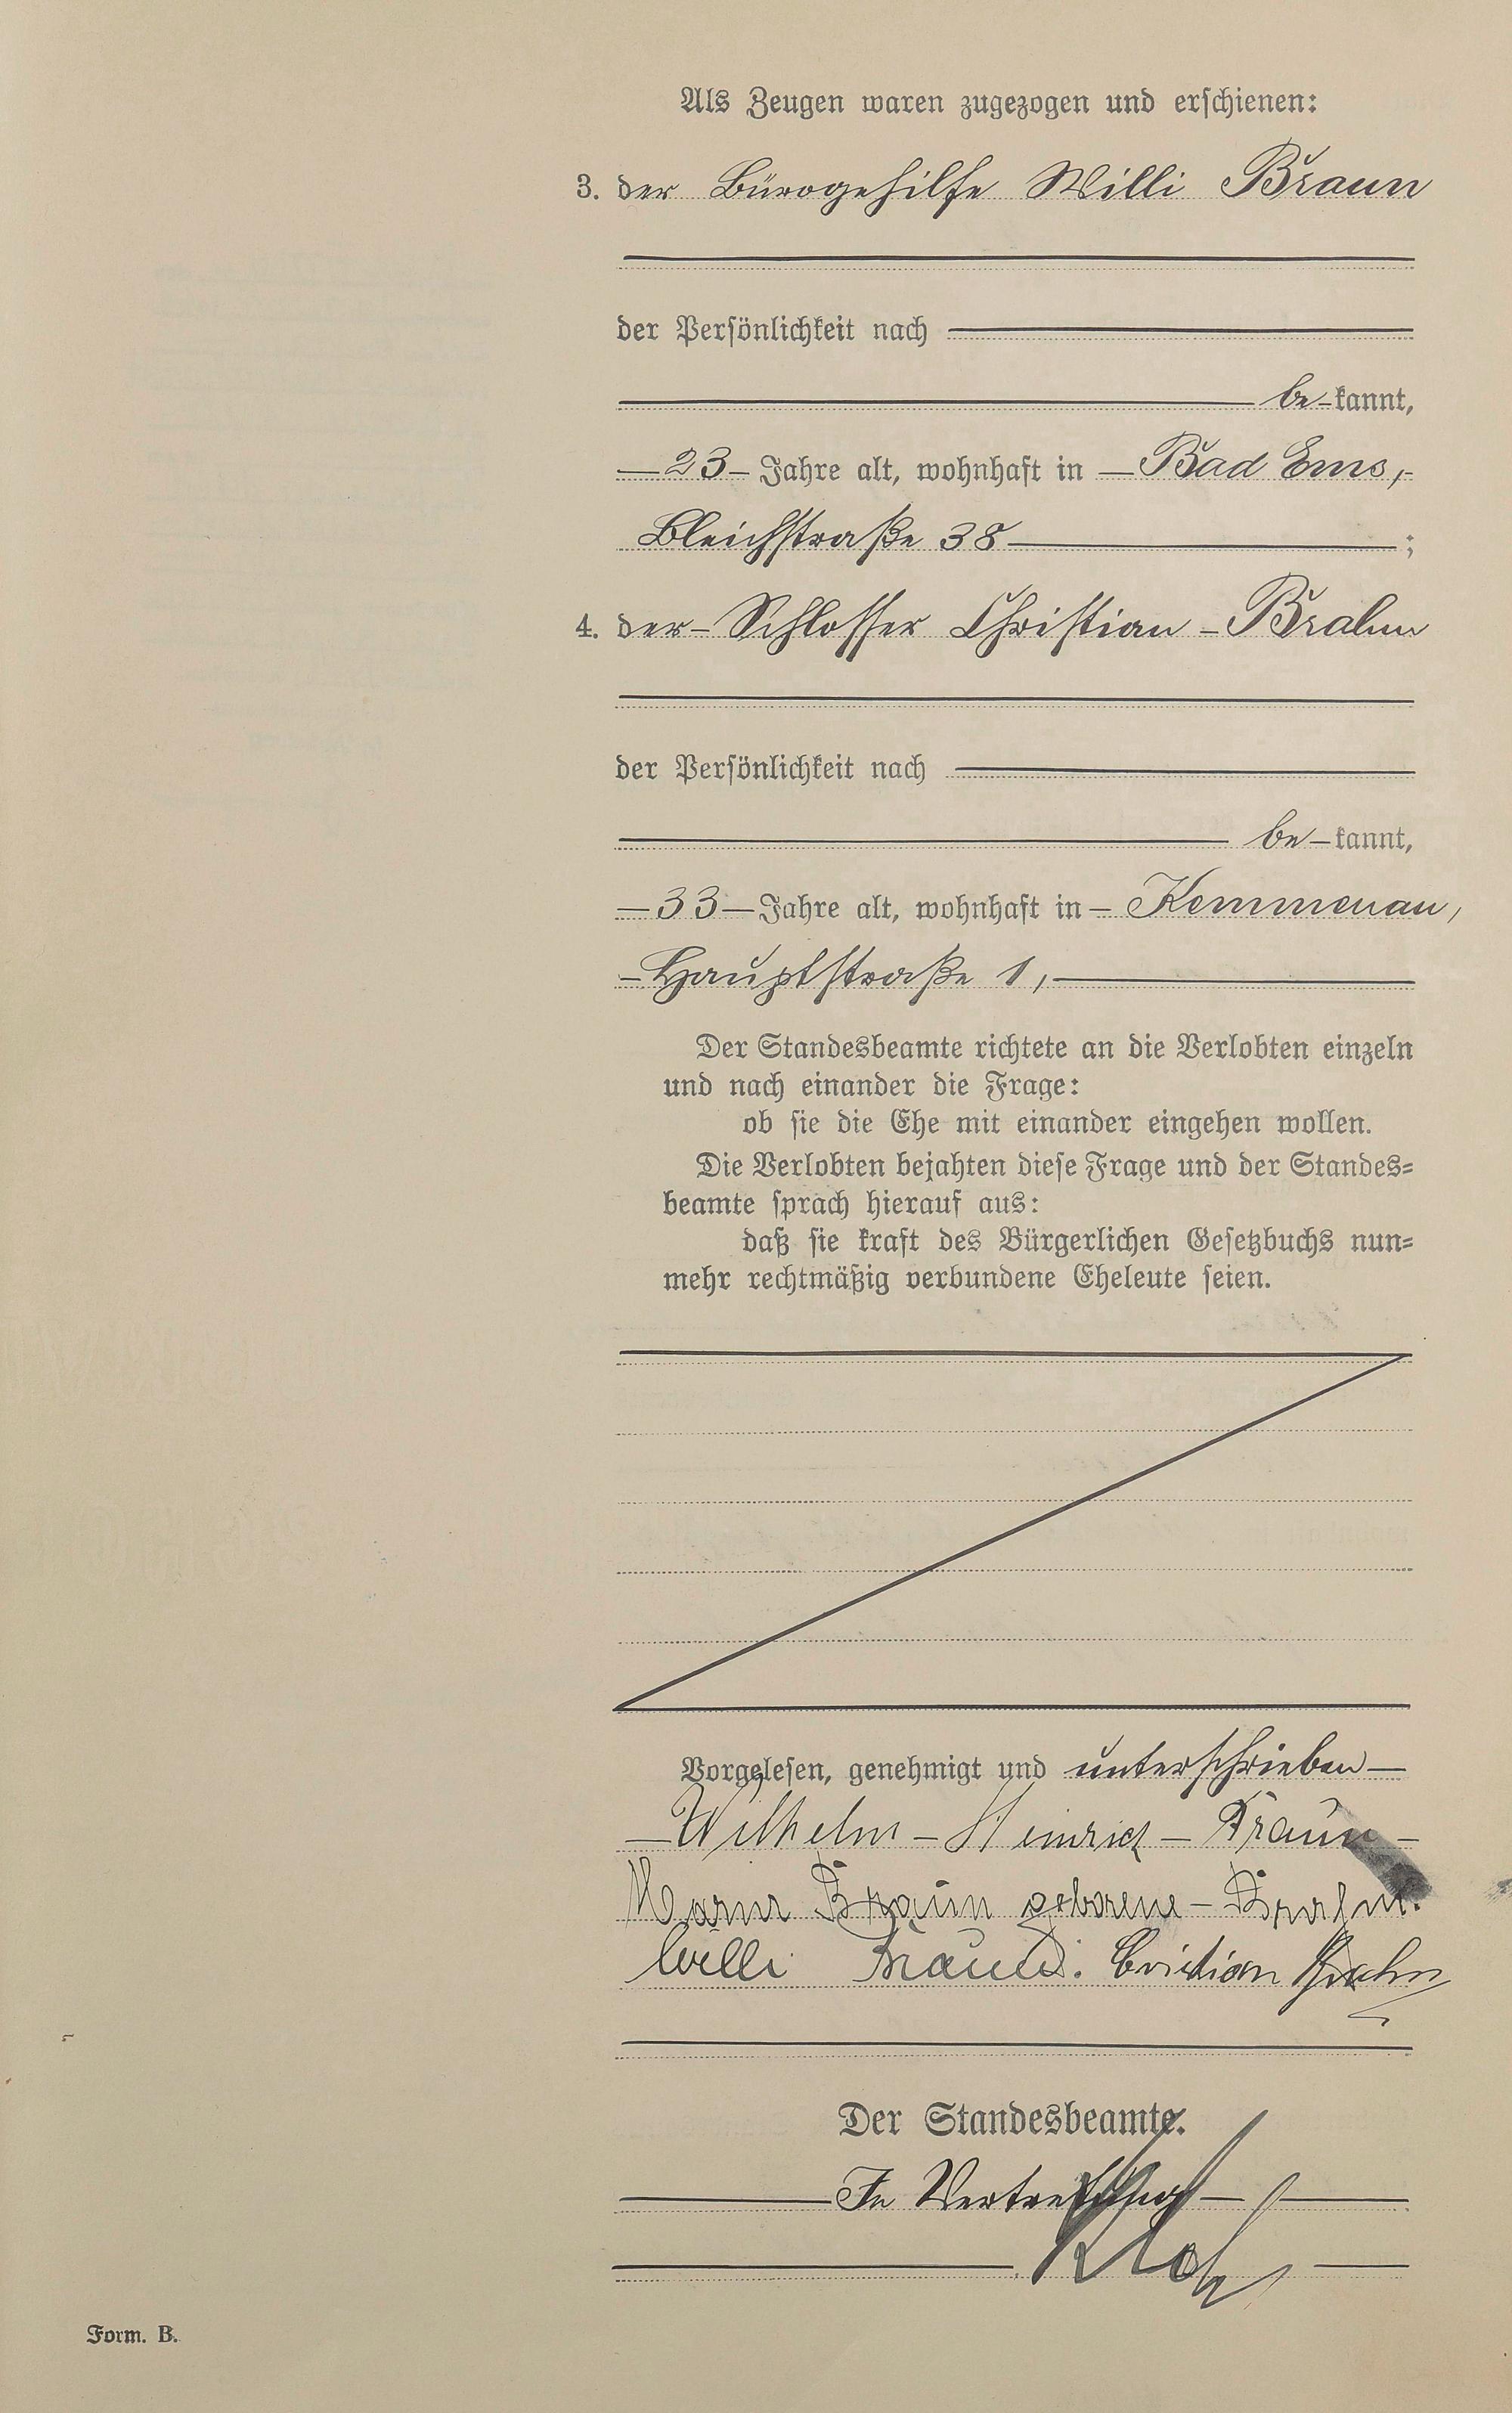 Als Zeugen waren zugezogen und erschienen:
3. der Bürogehilfe Willi Braun
der Persönlichkeit nach
be-kannt,
23 Jahre alt, wohnhaft in Bad Ems,
Bleichstraße 38 ;
4. der Schlosser Christian Brahm
der Persönlichkeit nach
be-kannt,
33 Jahre alt, wohnhaft in Kemmenau,
Hauptstraße 1,
Der Standesbeamte richtete an die Verlobten einzeln
und nach einander die Frage:
ob sie die Ehe mit einander eingehen wollen.
Die Verlobten bejahten diese Frage und der Standes=
beamte sprach hierauf aus:
daß sie kraft des Bürgerlichen Gesetzbuchs nun=
mehr rechtmäßig verbundene Eheleute seien.
Vorgelesen, genehmigt und unterschrieben
Wilhelm Heinrich Braun
Braun geborene Brahm.
Willi Braun. Cristian Brahm
Der Standesbeamte.
In Vertretung
Form. B.